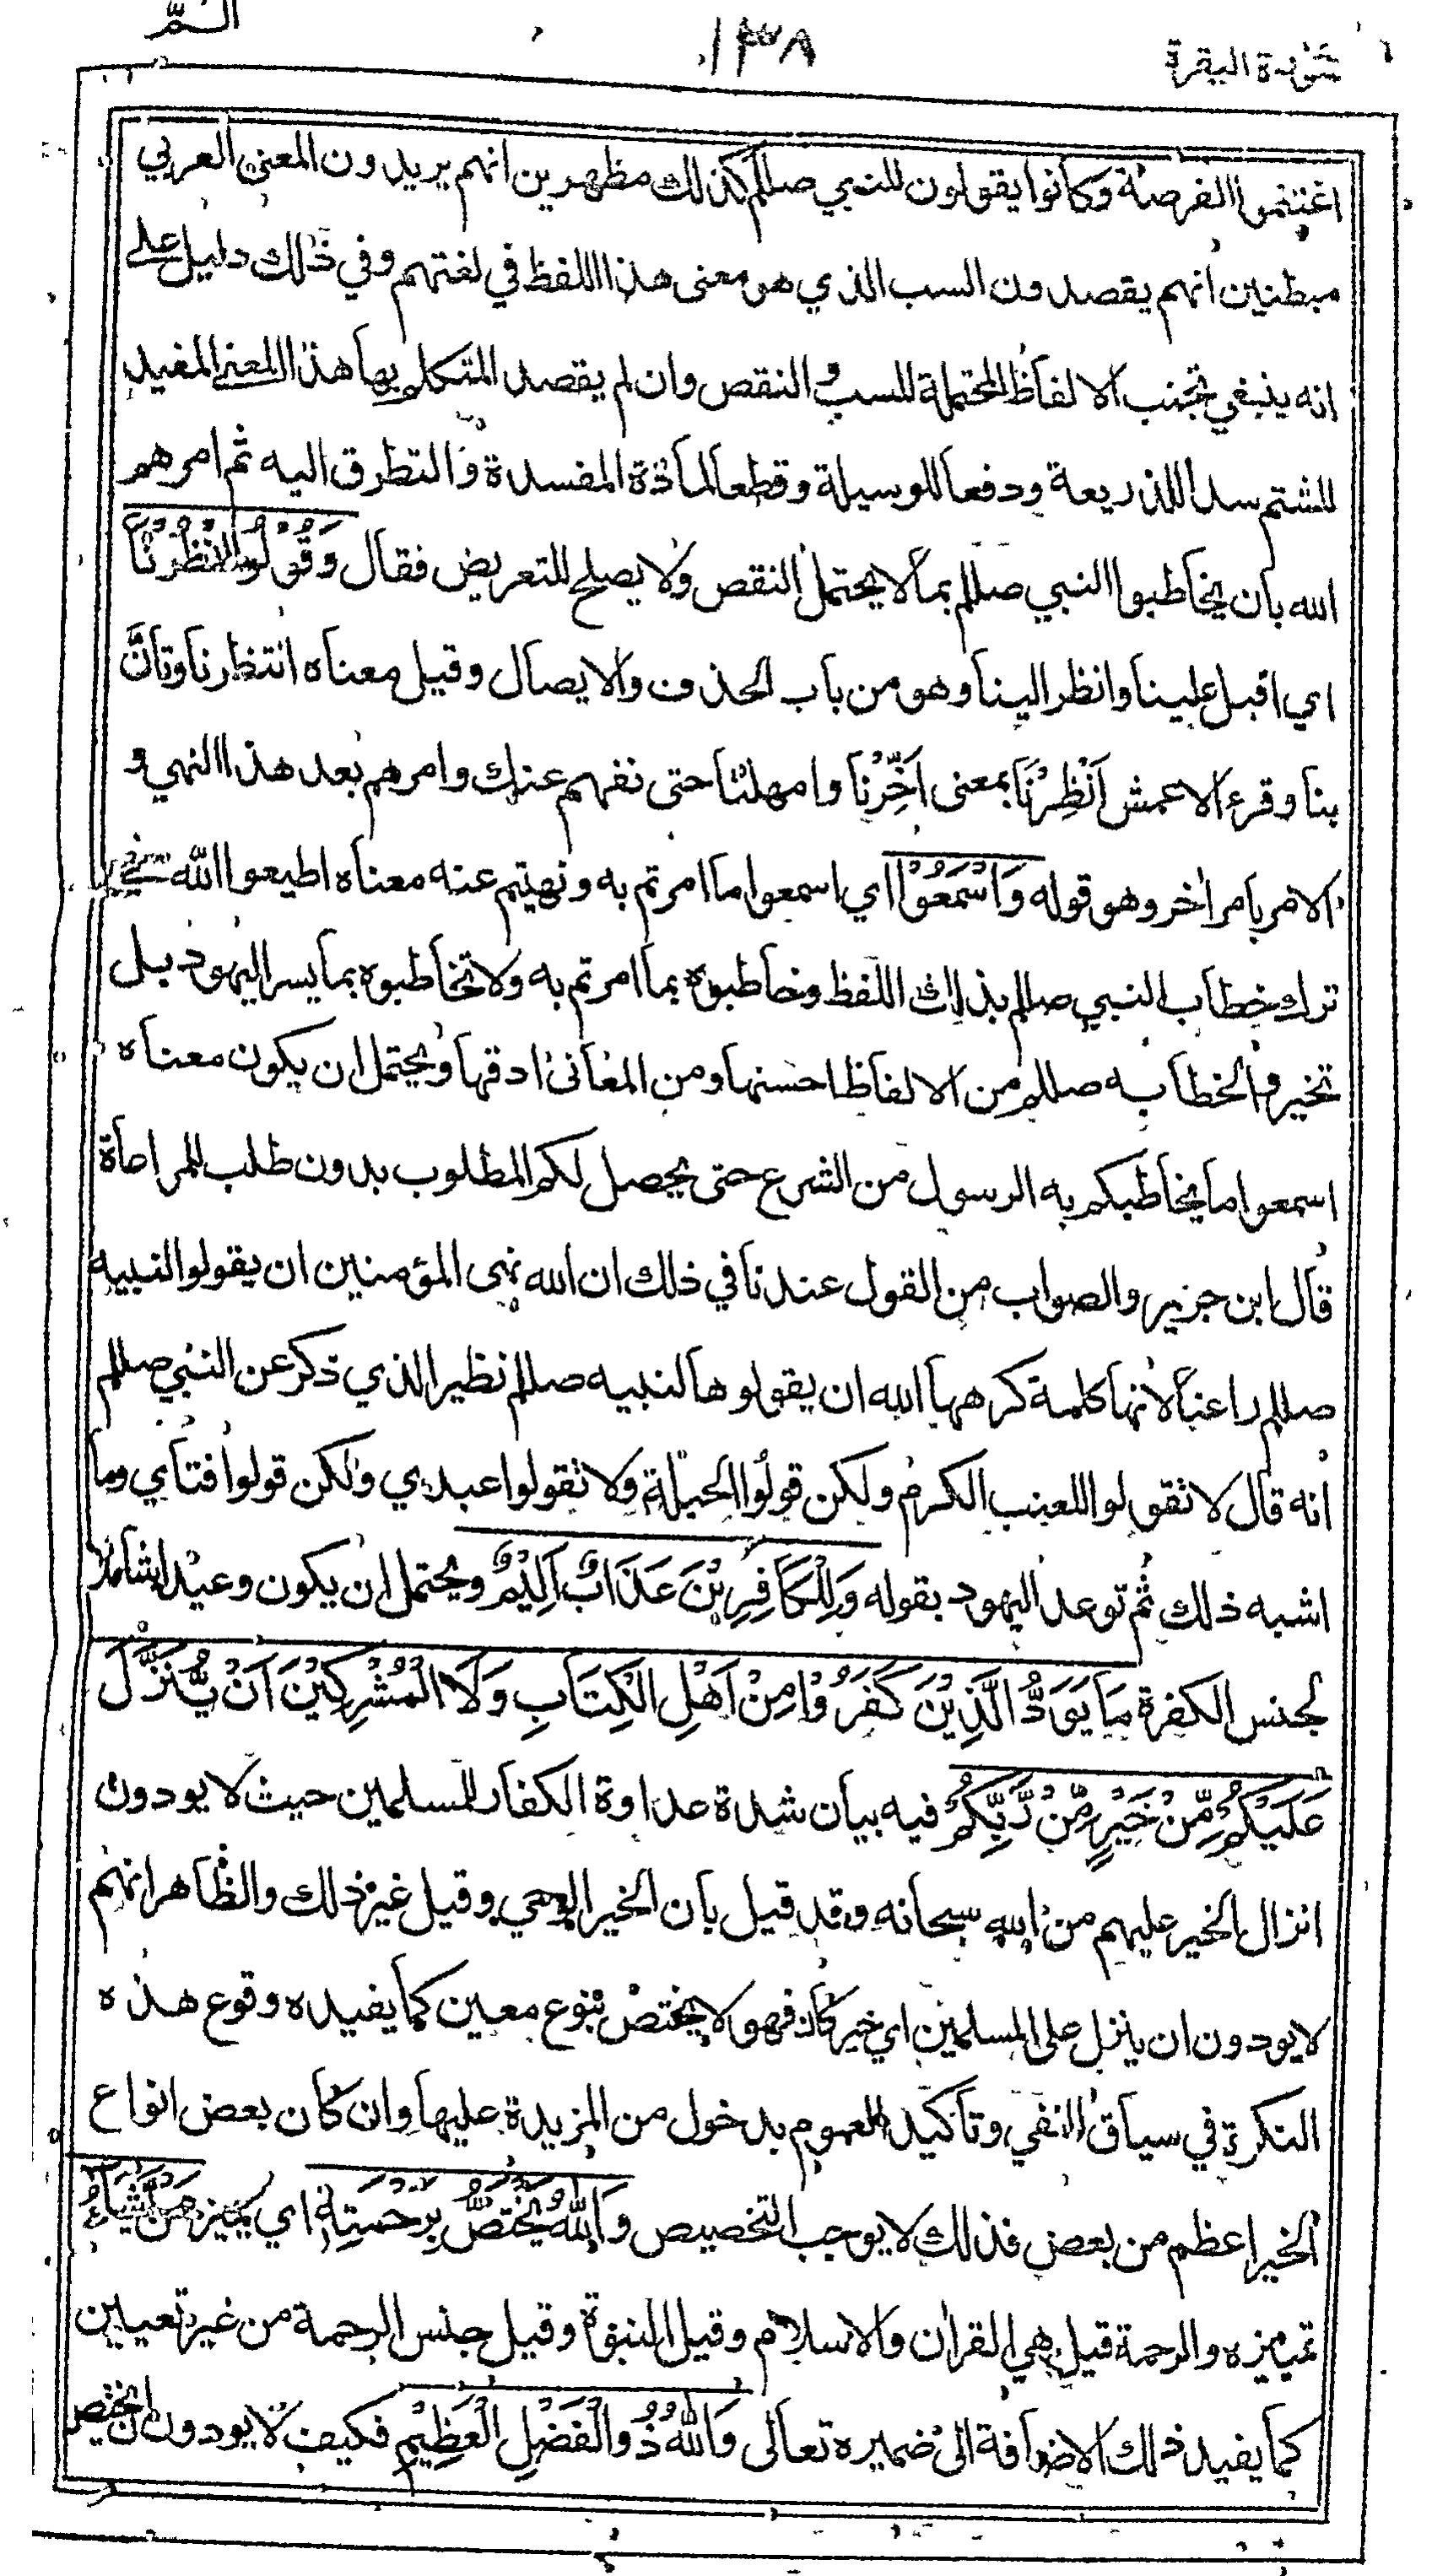 سورة البقرة ١٣٨ الـم
اغتنموا الفرصة وكانوا يقولون للنبي صللم كذلك مظهرين انهم يريدون المعنى العربي
مبطنين انهم يقصدون السب الذي هو معنى هذا اللفظ في لغتهم وفي ذلك دليل على
انه ينبغي تجنب الالفاظ المحتملة للسب والنقص وان لم يقصد المتكلم بها هذا المعنى المفيد
للشتم سدا للذريعة ودفعا للوسيلة وقطعا لمادة المفسدة والتطرق اليه ثم امرهم
الله بان يخاطبوا النبي صللم بما لا يحتمل النقص ولا يصلح للتعريض فقال وَقُوْلُوا انْظُرْنَا
اي اقبل علينا وانظر الينا وهو من باب الحذف والايصال وقيل معناه انتظرنا وتأنَّ
بنا وقرء الاعمش اَنْظِرْنَا بمعنى اَخِّرْنَا وامهلنا حتى نفهم عنك وامرهم بعد هذا النهي و
الامر بامر اخر وهو قوله وَاسْمَعُوْا اي اسمعوا ما امرتم به ونهيتم عنه معناه اطيعوا الله في
ترك خطاب النبي صللم بذلك اللفظ وخاطبوه بما امرتم به ولا تخاطبوه بما يسر اليهود بل
تخيروا لخطابه صللم من الالفاظ احسنها ومن المعاني ادقها ويحتمل ان يكون معناه
اسمعوا ما يخاطبكم به الرسول من الشرع حتى يحصل لكم المطلوب بدون طلب للمراعاة
قال ابن جرير والصواب من القول عندنا في ذلك ان الله نهى المؤمنين ان يقولوا لنبيه
صللم راعنا لانها كلمة كرهها الله ان يقولوها لنبيه صللم نظير الذي ذكر عن النبي صللم
انه قال لا تقولوا للعنب الكرم ولكن قولوا الحبلة ولا تقولوا عبدي ولكن قولوا فتاي وما
اشبه ذلك ثم توعد اليهود بقوله وَلِلْكَافِرِيْنَ عَذَابٌ اَلِيْمٌ ويحتمل ان يكون وعيدا شاملا
لجنس الكفرة مَا يَوَدُّ الَّذِيْنَ كَفَرُوْا مِنْ اَهْلِ الْكِتَابِ وَلَا الْمُشْرِكِيْنَ اَنْ يُّنَزَّلَ
عَلَيْكُمْ مِّنْ خَيْرٍ مِّنْ رَّبِّكُمْ فيه بيان شدة عداوة الكفار للمسلمين حيث لا يودون
انزال الخير عليهم من الله سبحانه وقد قيل بان الخير الوحي وقيل غير ذلك والظاهر انهم
لا يودون ان ينزل على المسلمين اي خير كان فهو لا يختص بنوع معين كما يفيده وقوع هذه
النكرة في سياق النفي وتاكيد العموم بدخول من المزيدة عليها وان كان بعض انواع
الخير اعظم من بعض فذلك لا يوجب التخصيص وَاللّٰهُ يَخْتَصُّ بِرَحْمَتِهٖ اي يميز مَنْ يَّشَاءُ
تمييزه والرحمة قيل هي القران والاسلام وقيل النبوة وقيل جنس الرحمة من غير تعيين
كما يفيد ذلك الاضافة الى ضميره تعالى وَاللّٰهُ ذُو الْفَضْلِ الْعَظِيْمِ فكيف لا يودون ان يختص